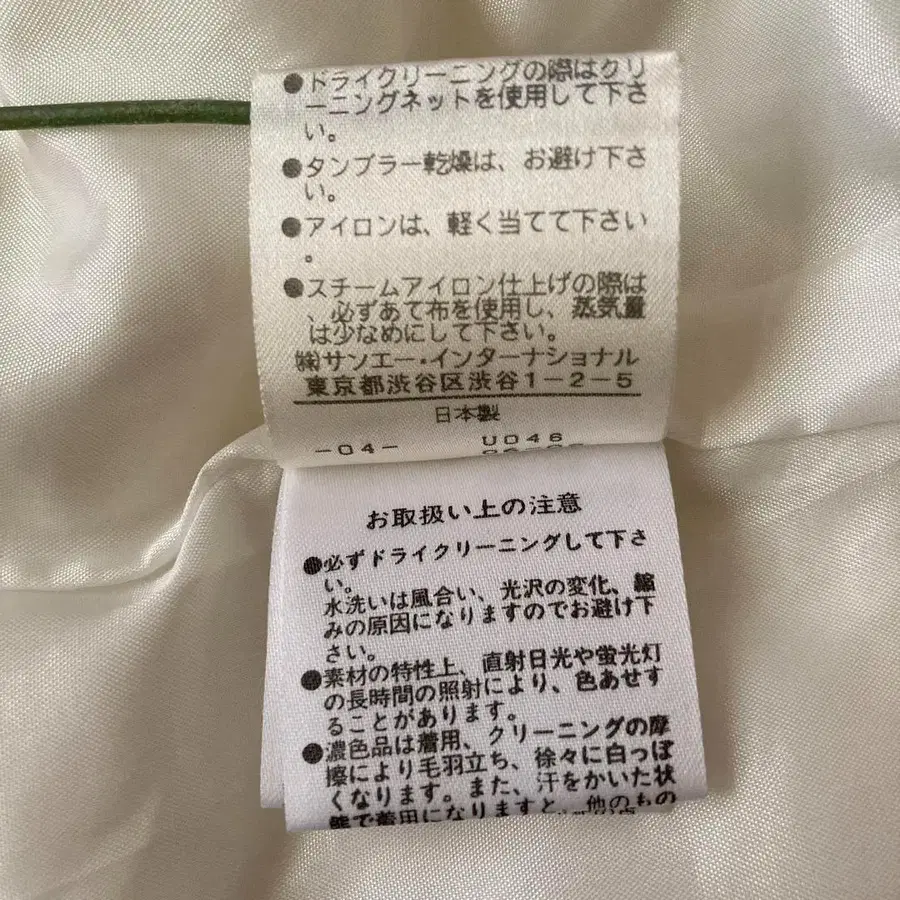 ●ドライクリーニングの際はクリ
ーニングネットを使用して下さ
い。
●タンブラー乾燥は、お避け下さ
い。
●アイロンは、軽く当てて下さい
。
●スチームアイロン仕上げの際は
、必ずあて布を使用し、蒸気量
は少なめにして下さい。
㈱サンエー・インターナショナル
東京都渋谷区渋谷1-2-5
日本製
-04- U046
お取扱い上の注意
●必ずドライクリーニングして下さ
い。
水洗いは風合い、光沢の変化、縮
みの原因になりますのでお避け下
さい。
●素材の特性上、直射日光や蛍光灯
の長時間の照射により、色あせす
ることがあります。
●濃色品は着用、クリーニングの摩
擦により毛羽立ち、徐々に白っぽ
くなります。また、汗をかいた状
態で着用になりますと、他のもの